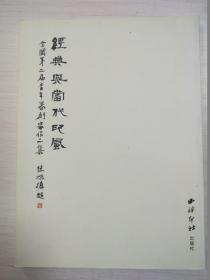 經典與當代印風
全國第二届青年篆刻家作品集
西泠印社
出版社